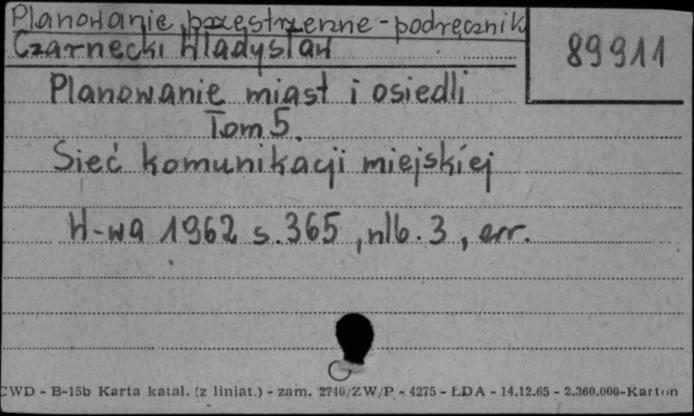 Planowanie przestrzenne - podręcznik
Czarnecki Władysław
89911
Planowanie miast i osiedli
Tom 5.
Sieć komunikacji miejskiej
W-wa 1962 s. 365, nlb. 3, err.
CWD - B-15b Karta katal. (z liniat.) - zam. 2740/ZW/P - 4275 - ŁDA - 14.12.65 - 2.360.000-Karton